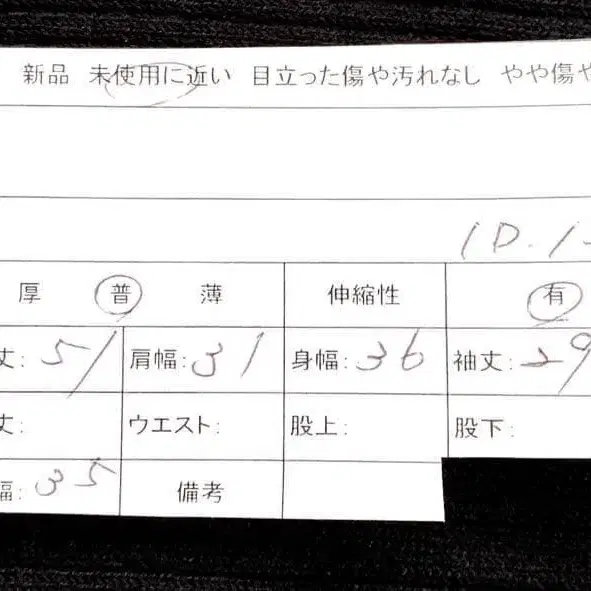 新品 未使用に近い 目立った傷や汚れなし やや傷や
1D.1
厚 普 薄 伸縮性 有
丈: 51 肩幅: 31 身幅: 36 袖丈: 29
丈: ウエスト: 股上: 股下:
幅: 35 備考